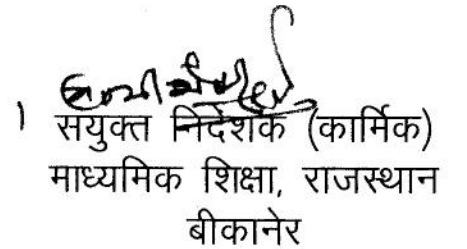 सयुक्त निर्देशक (कार्मिक)
माध्यमिक शिक्षा, राजस्थान
बीकानेर